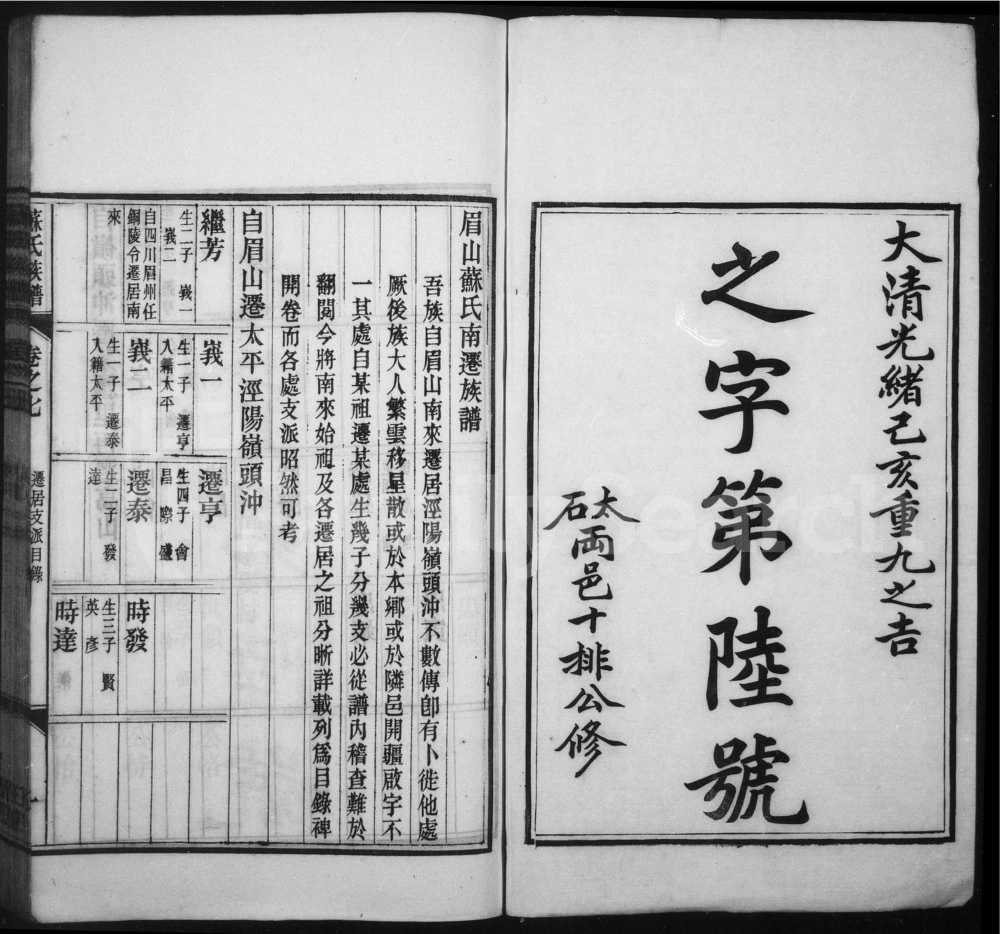 大清光緒己亥重九之吉
之字第陸號
太石兩邑十排公修
眉山蘇氏南遷族譜
吾族自眉山南來遷居涇陽嶺頭沖不數傳卽有卜徙他處
厥後族大人繁雲移星散或於本鄉或於隣邑開疆啟宇不
一其處自某祖遷某處生幾子分幾支必從譜內稽查難於
翻閱今將南來始祖及各遷居之祖分晰詳載列爲目錄裨
開卷而各處支派昭然可考
自眉山遷太平涇陽嶺頭沖
繼芳
生二子 義一
義二
自四川眉州任
銅陵令遷居南
來
義一
生一子 遷亨
入籍太平
義二
生一子 遷泰
入籍太平
遷亨
生四子 會
昌 際 盛
遷泰
生二子 發
達
時發
生三子 賢
英 彥
時達
蘇氏族譜
卷之七
遷居支派目錄
一